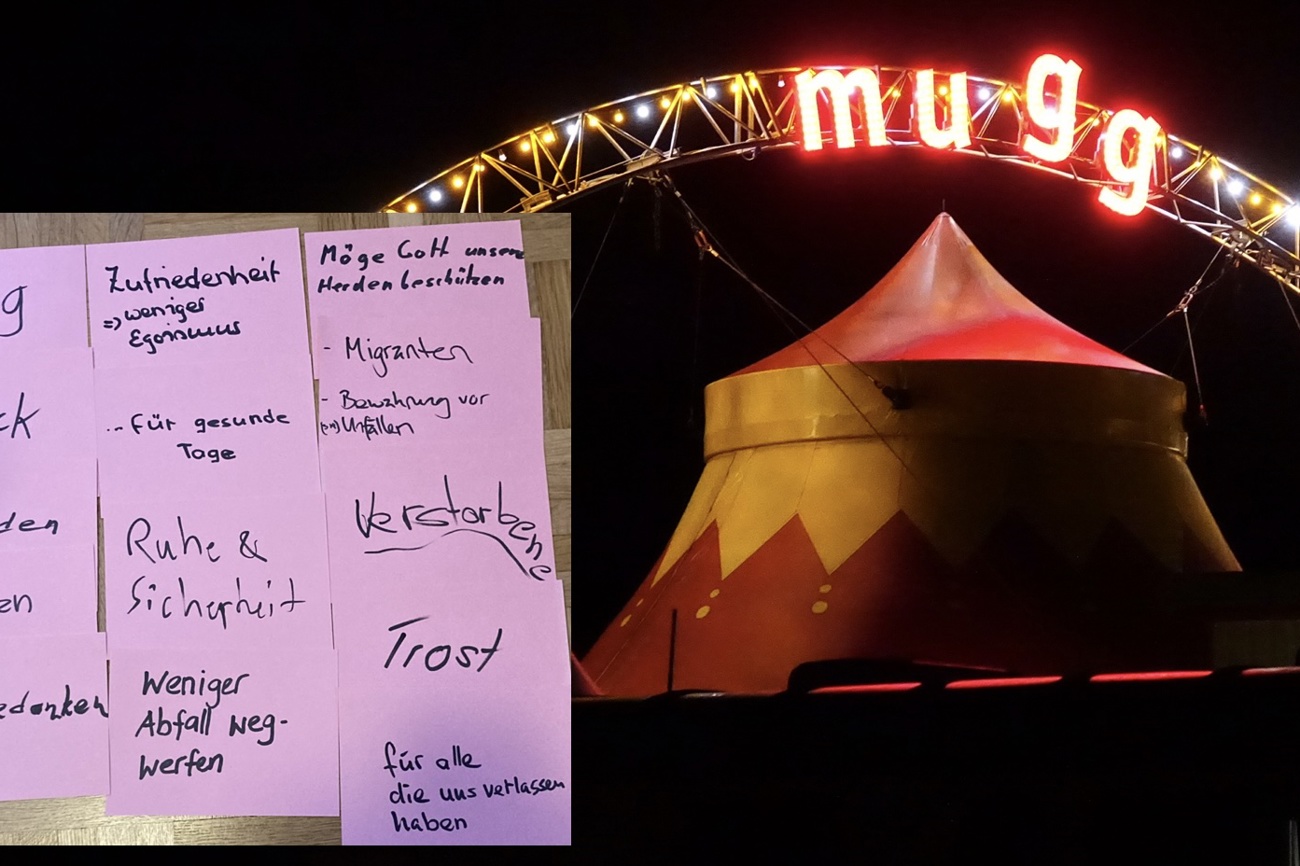 mugg
g
ck
den
en
edanken
Zufriedenheit
=> weniger
Egoismus
... für gesunde
Tage
Ruhe &
Sicherheit
Weniger
Abfall weg-
werfen
Möge Gott unsere
Herden beschützen
- Migranten
- Bewahrung vor
Unfällen
Verstorbene
Trost
für alle
die uns verlassen
haben